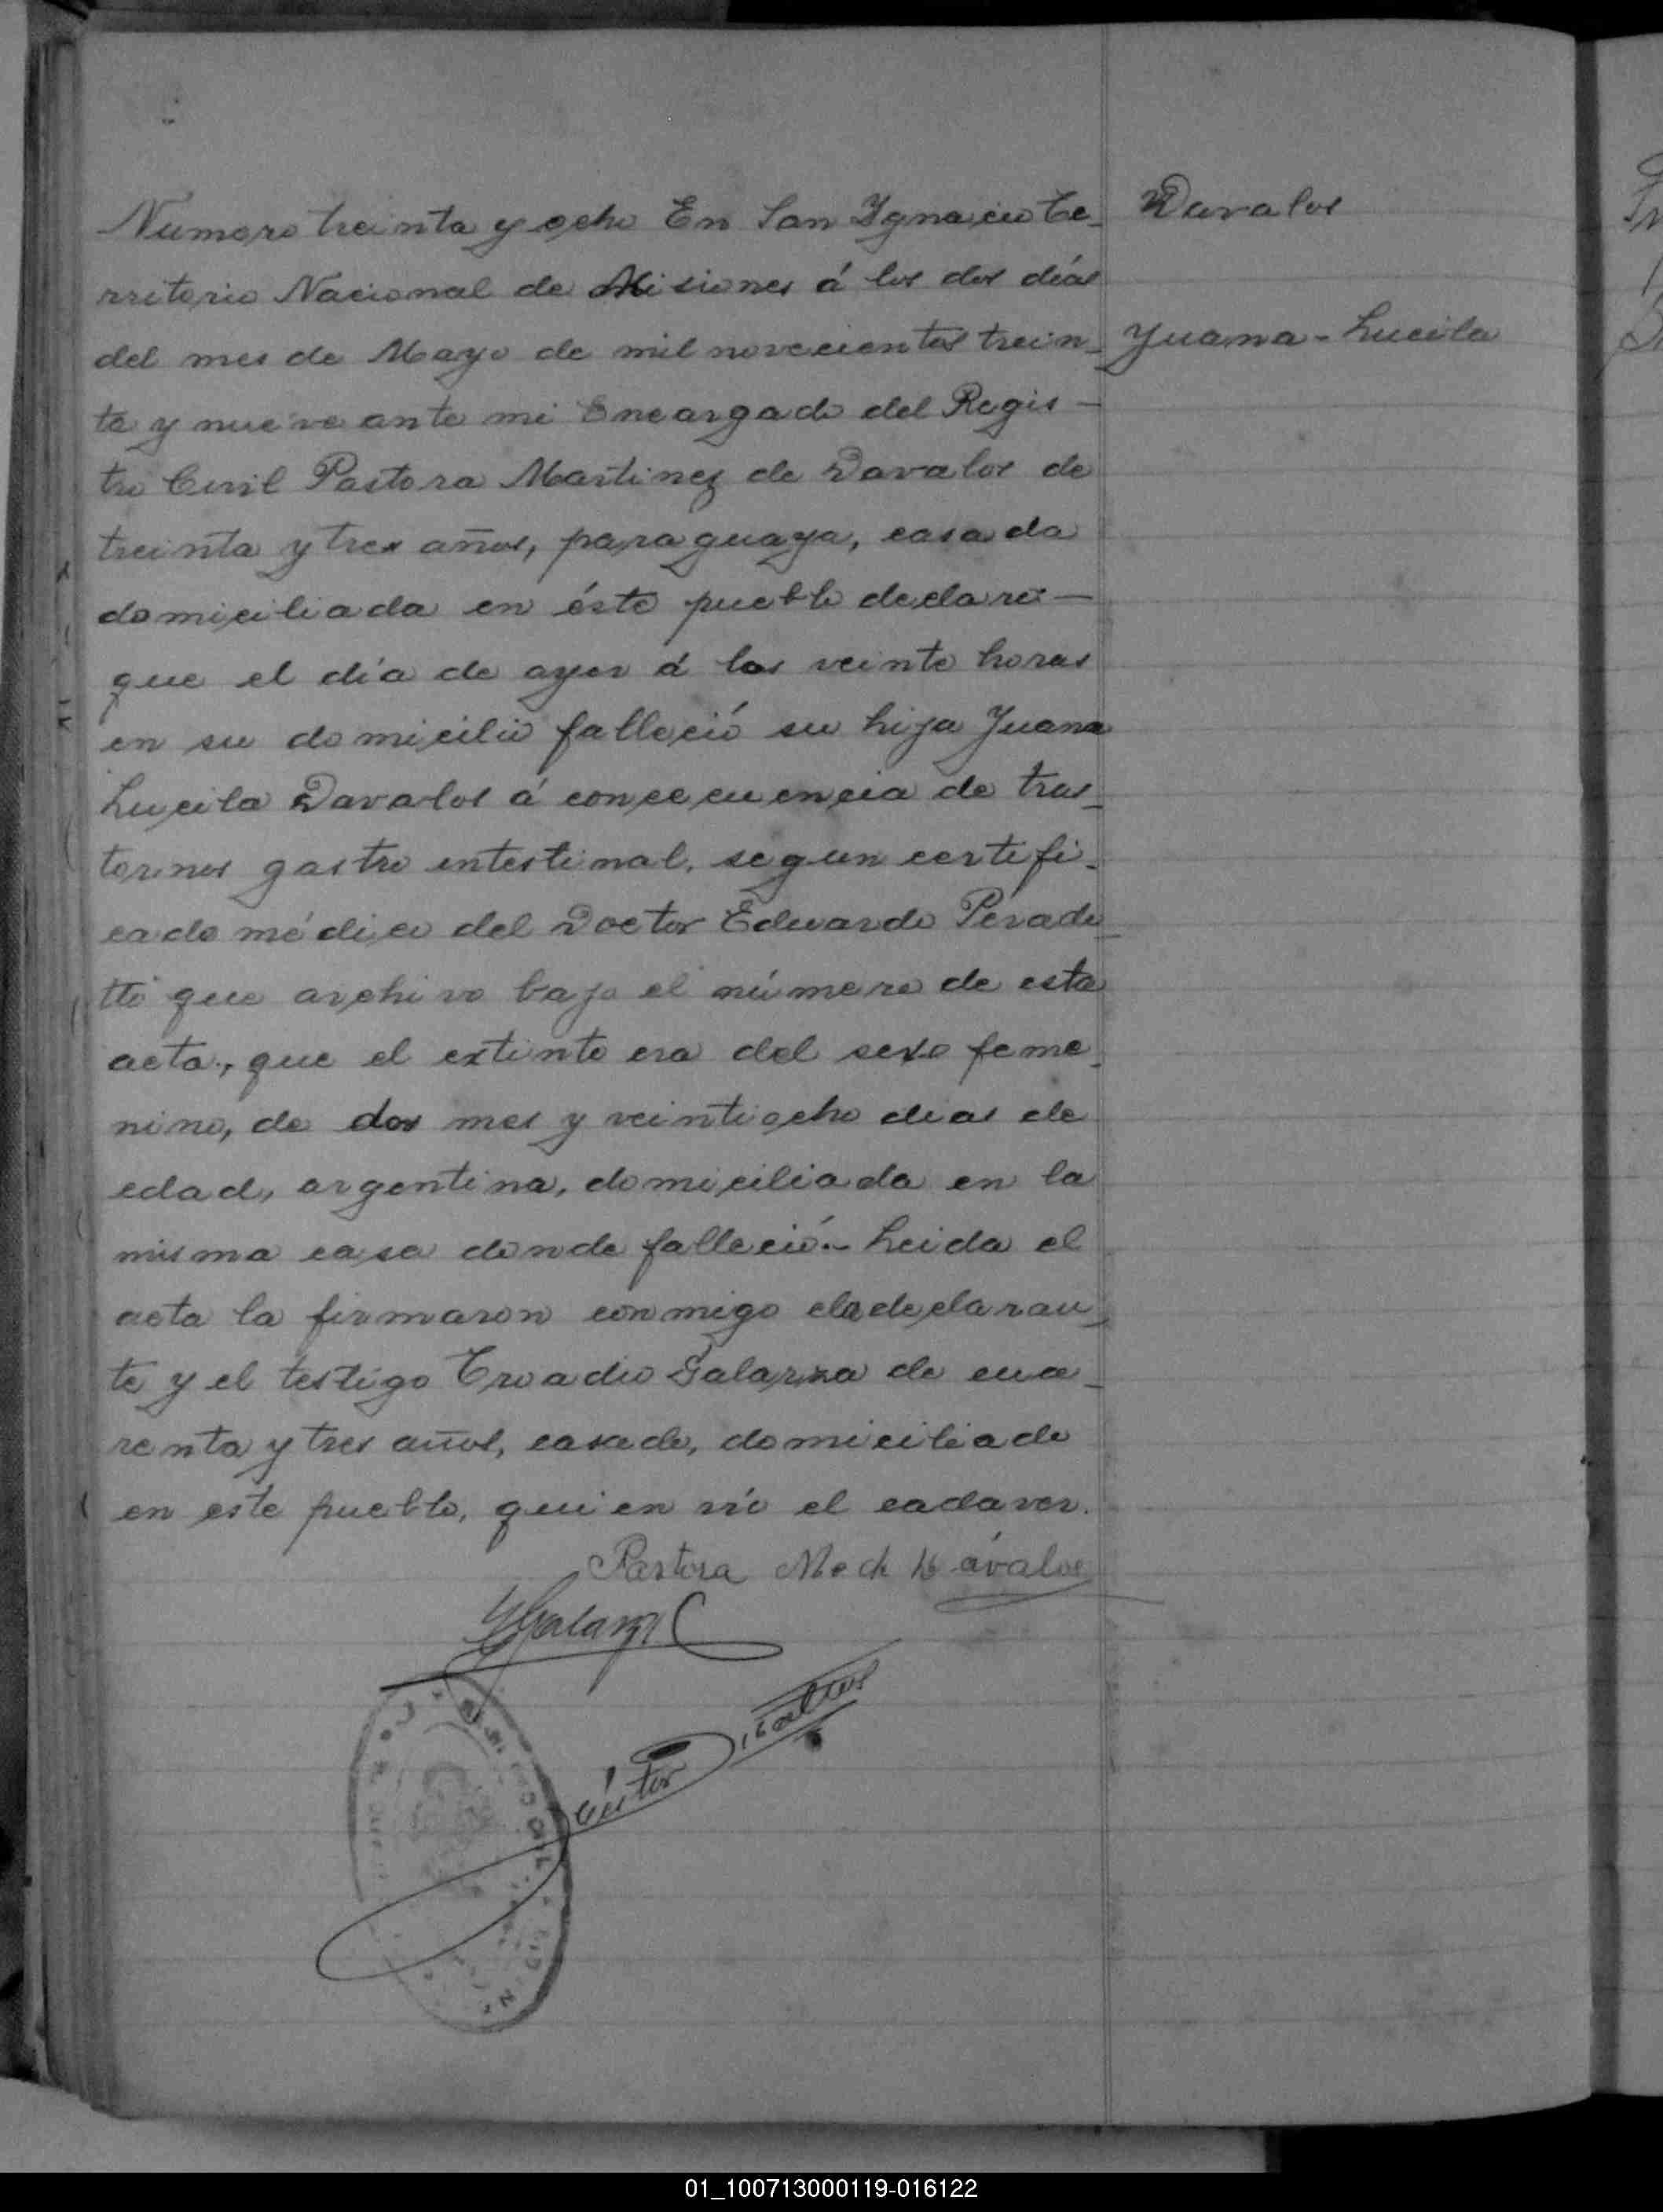 Numero treinta y ocho En San Ygnacio Te-
rritorio Nacional de Misiones á los dos días
del mes de Mayo de mil novecientos trein-
ta y nueve ante mi Encargado del Regis-
tro Civil Pastora Martinez de Davalos de
treinta y tres años, paraguaya, casada
domiciliada en éste pueblo declaro:-
que el día de ayer á las veinte horas
en su domicilio falleció su hija Juana
Lucila Davalos á concecuencia de tras-
tornos gastro intestinal, segun certifi-
cado médico del Doctor Eduardo Perade
tto que archivo bajo el número de esta
acta, que el extinto era del sexo feme-
nino, de dos mes y veintiocho dias de
edad, argentina, domiciliada en la
misma casa donde falleció.- Leida el
acta la firmaron conmigo la declaran-
te y el testigo Troadio Galarza de cua-
renta y tres años, casado, domiciliado
en este pueblo, quien vío el cadaver.
Davalos
Juana - Lucila
Pastora M de Dávalos
Galarza
01_100713000119-016122